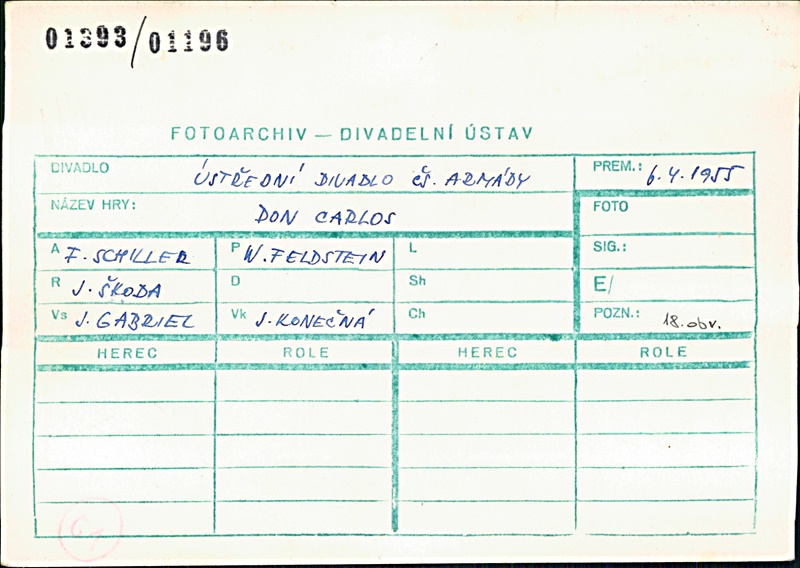 01393/01196
FOTOARCHIV — DIVADELNÍ ÚSTAV
DIVADLO ÚSTŘEDNÍ DIVADLO ČS. ARMÁDY PREM.: 6.4.1955
NÁZEV HRY: DON CARLOS FOTO
A F. SCHILLER P W. FELDSTEIN L SIG.:
R J. ŠKODA D Sh E/
Vs J. GABRIEL Vk J. KONEČNÁ Ch POZN.: 18. obr.
HEREC ROLE HEREC ROLE